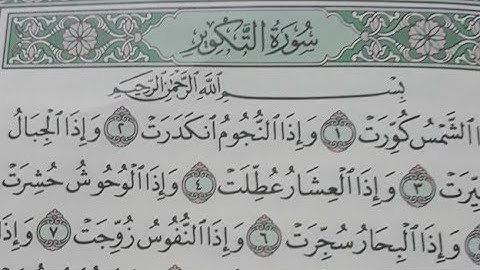 سُورَةُ التَّكْوِيرِ
بِسْمِ اللَّهِ الرَّحْمَٰنِ الرَّحِيمِ
الشَّمْسُ كُوِّرَتْ ١ وَإِذَا النُّجُومُ انكَدَرَتْ ٢ وَإِذَا الْجِبَالُ
يِّرَتْ ٣ وَإِذَا الْعِشَارُ عُطِّلَتْ ٤ وَإِذَا الْوُحُوشُ حُشِرَتْ
وَإِذَا الْبِحَارُ سُجِّرَتْ ٦ وَإِذَا النُّفُوسُ زُوِّجَتْ ٧ وَإِذَا